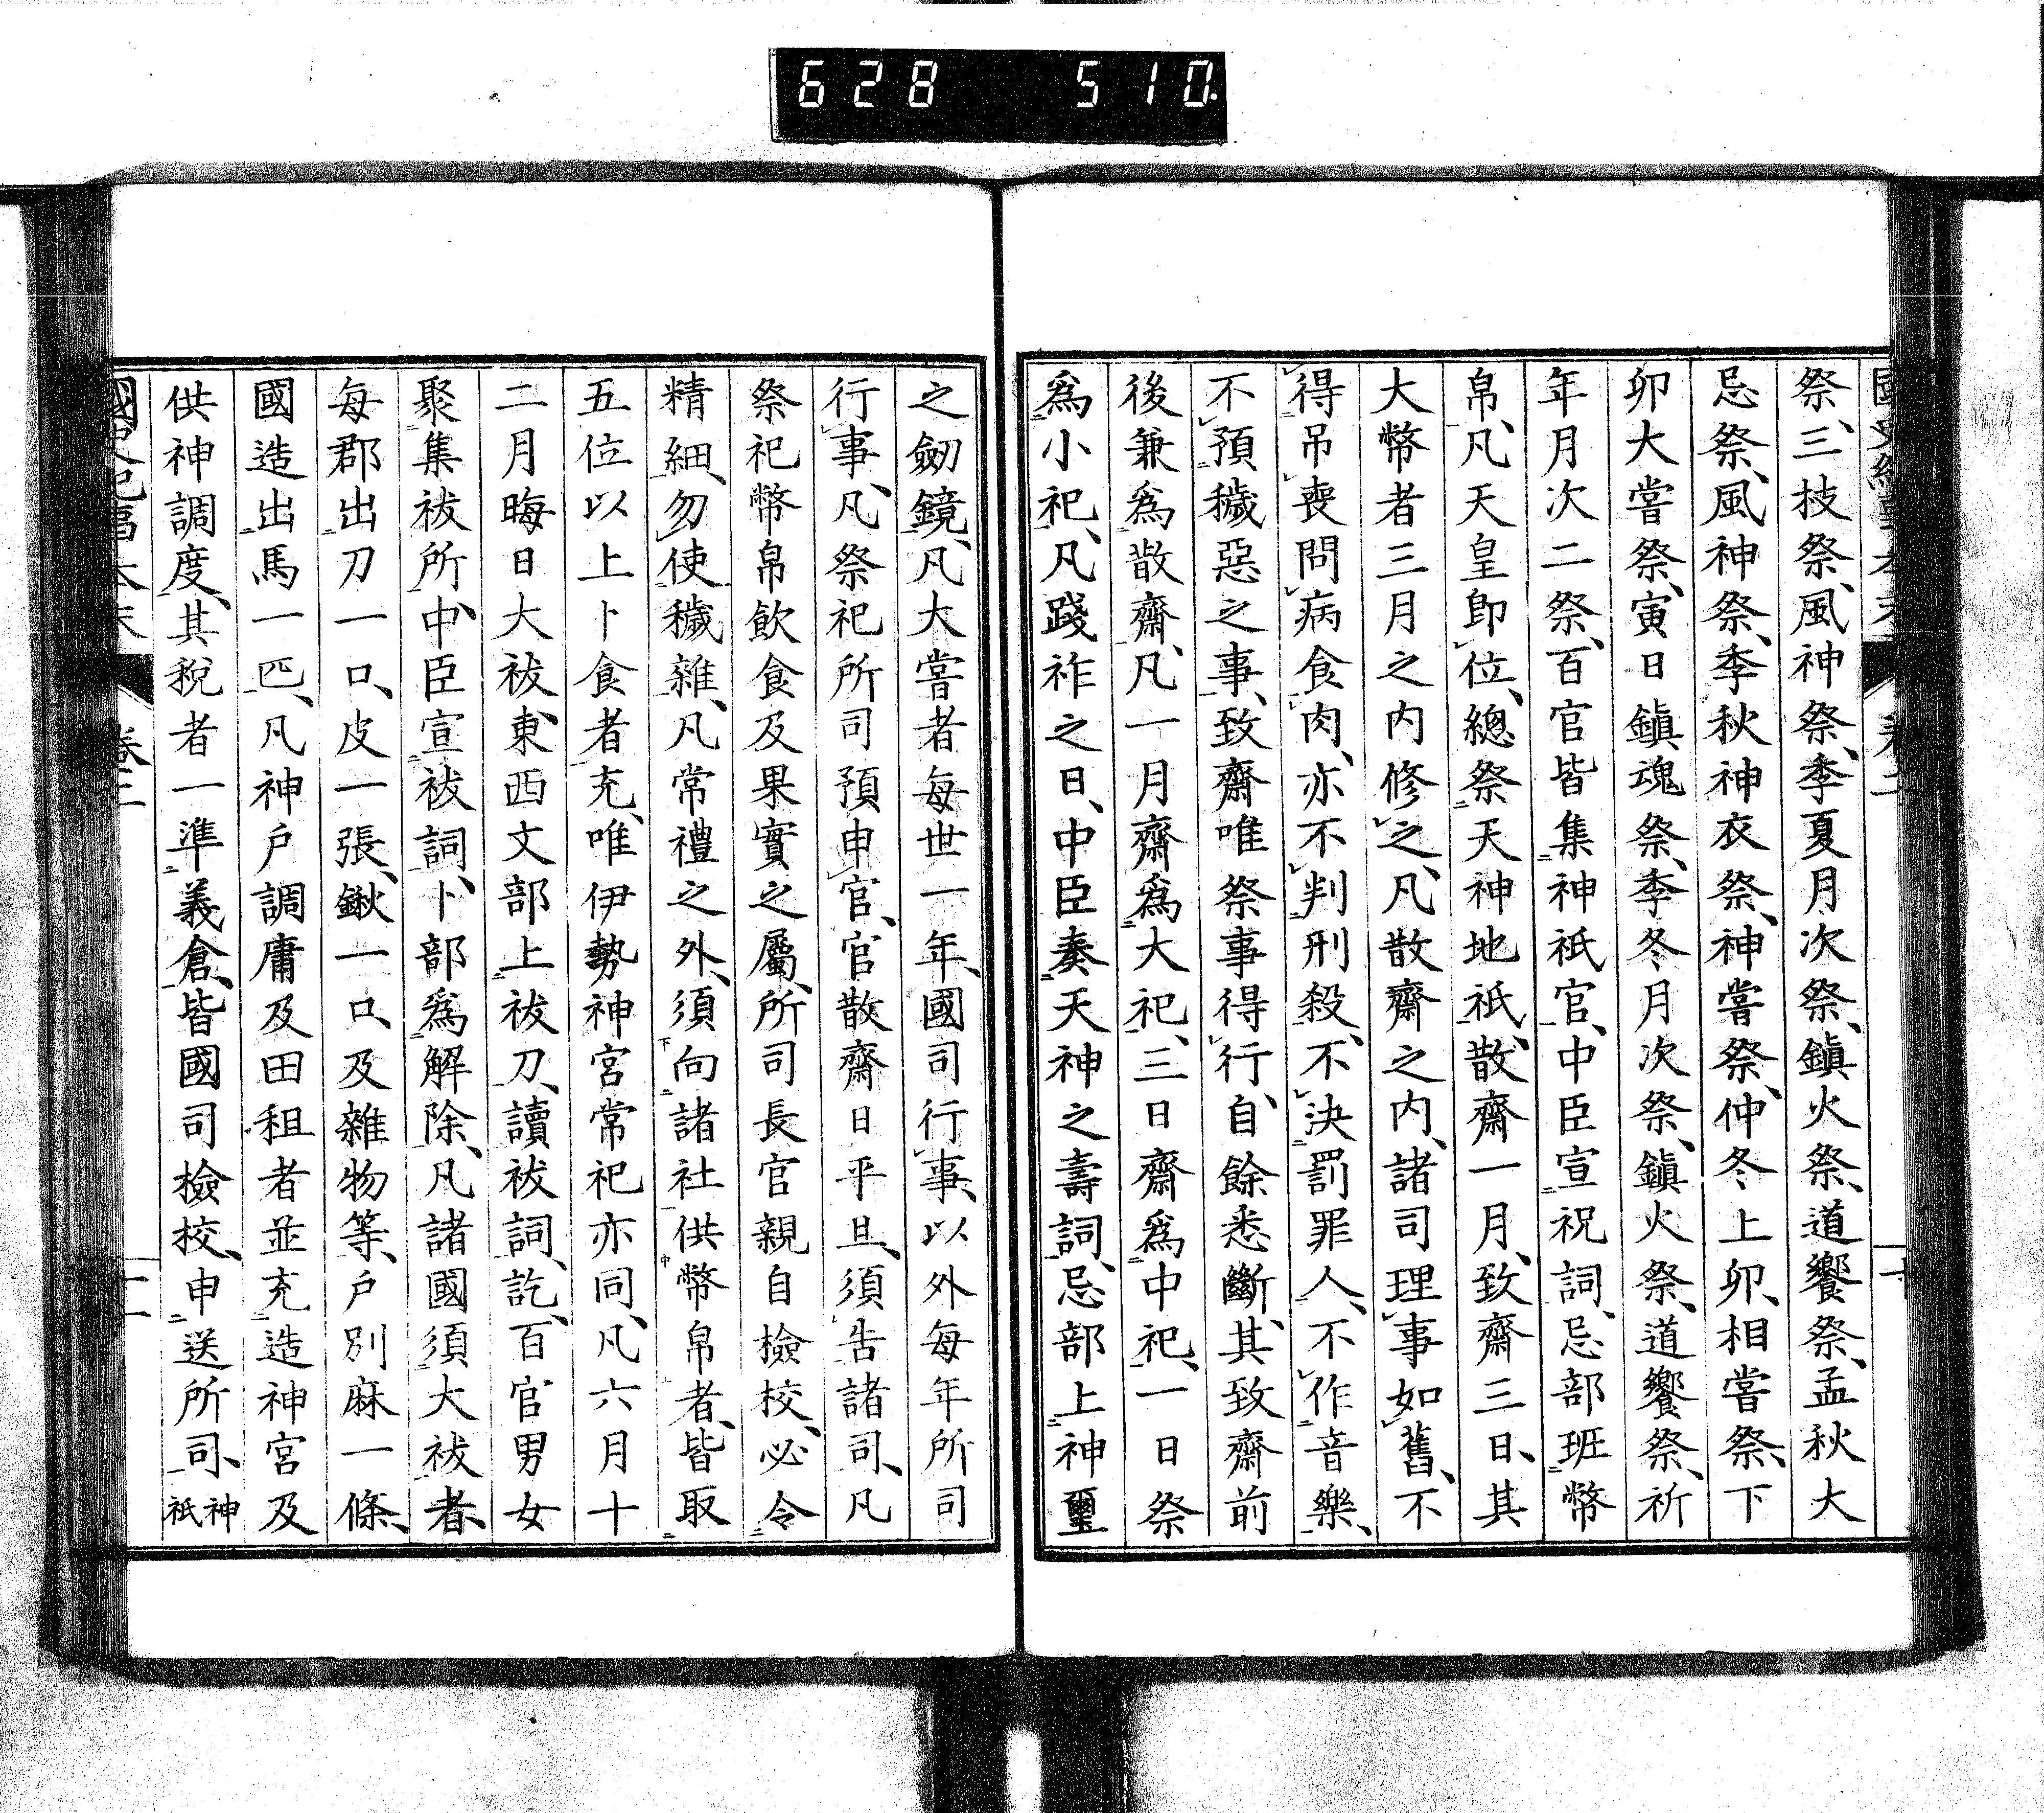 628 510
祭、三枝祭、風神祭、季夏月次祭、鎭火祭、道饗祭、孟秋大
忌祭、風神祭、季秋神衣祭、神嘗祭、仲冬上卯、相嘗祭、下
卯大嘗祭、寅日鎭魂祭、季冬月次祭、鎭火祭、道饗祭、祈
年月次二祭、百官皆集神祇官、中臣宣祝詞、忌部班幣
帛、凡天皇卽位、總祭天神地祇、散齋一月、致齋三日、其
大幣者三月之内修之、凡散齋之内、諸司理事如舊、不
得吊喪問病食肉、亦不判刑殺、不決罰罪人、不作音樂、
不預穢惡之事、致齋唯祭事得行、自餘悉斷、其致齋前
後兼爲散齋、凡一月齋爲大祀、三日齋爲中祀、一日祭
爲小祀、凡踐祚之日、中臣奏天神之壽詞、忌部上神璽
之劒鏡、凡大嘗者每世一年、國司行事、以外每年所司
行事、凡祭祀所司預申官、官散齋日平旦、須告諸司、凡
祭祀幣帛飮食及果實之屬、所司長官親自檢校、必令
精細、勿使穢雜、凡常禮之外、須向諸社供幣帛者、皆取
五位以上卜食者充、唯伊勢神宮常祀亦同、凡六月十
二月晦日大祓、東西文部上祓刀、讀祓詞、訖、百官男女
聚集祓所、中臣宣祓詞、卜部爲解除、凡諸國須大祓者、
每郡出刀一口、皮一張、鍬一口、及雜物等、戶別麻一條、
國造出馬一匹、凡神戶調庸及田租者並充造神宮及
供神調度、其稅者一準義倉、皆國司檢校、申送所司、神祇
國史紀事本末 卷三 十一